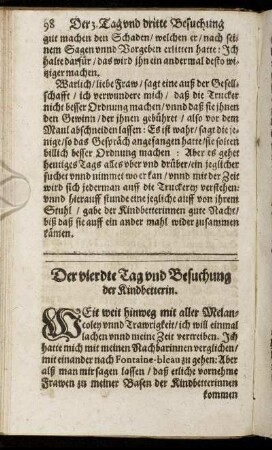 98 Der 3. Tag vnd dritte Besuchung
gut machen den Schaden / welchen er / nach sei-
nem Sagen vnnd Vorgeben erlitten hatte: Ich
halte darfür / das wird jhn ein ander mal desto wi-
tziger machen.
Warlich / liebe Fraw / sagt eine auß der Gesell-
schafft / ich verwundere mich / daß die Trucker
nicht besser Ordnung machen / vnnd daß sie jhnen
den Gewinn / der jhnen gebühret / also vor dem
Maul abschneiden lassen: Es ist wahr / sagt die je-
nige / so das Gespräch angefangen hatte / sie solten
billich besser Ordnung machen: Aber es gehet
heutiges Tags alles vber vnd drüber / ein jeglicher
suchet vnnd nimmet wo er kan / vnnd mit der Zeit
wird sich jederman auff die Truckerey verstehen:
vnnd hierauff stunde eine jegliche auff von jhrem
Stuhl / gabe der Kindbetterinnen gute Nacht /
biß daß sie auff ein ander mahl wider zusammen
kämen.
Der vierdte Tag vnd Besuchung
der Kindbetterin.
WEit weit hinweg mit aller Melan-
coley vnd Trawrigkeit / ich will einmal
lachen vnnd meine Zeit vertreiben. Ich
hatte mich mit meinen Nachbarinnen verglichen /
mit einander nach Fontaine-bleau zu gehen: Aber
alß man mir sagen lassen / daß etliche vornehme
Frawen zu meiner Basen der Kindbetterinnen
kommen